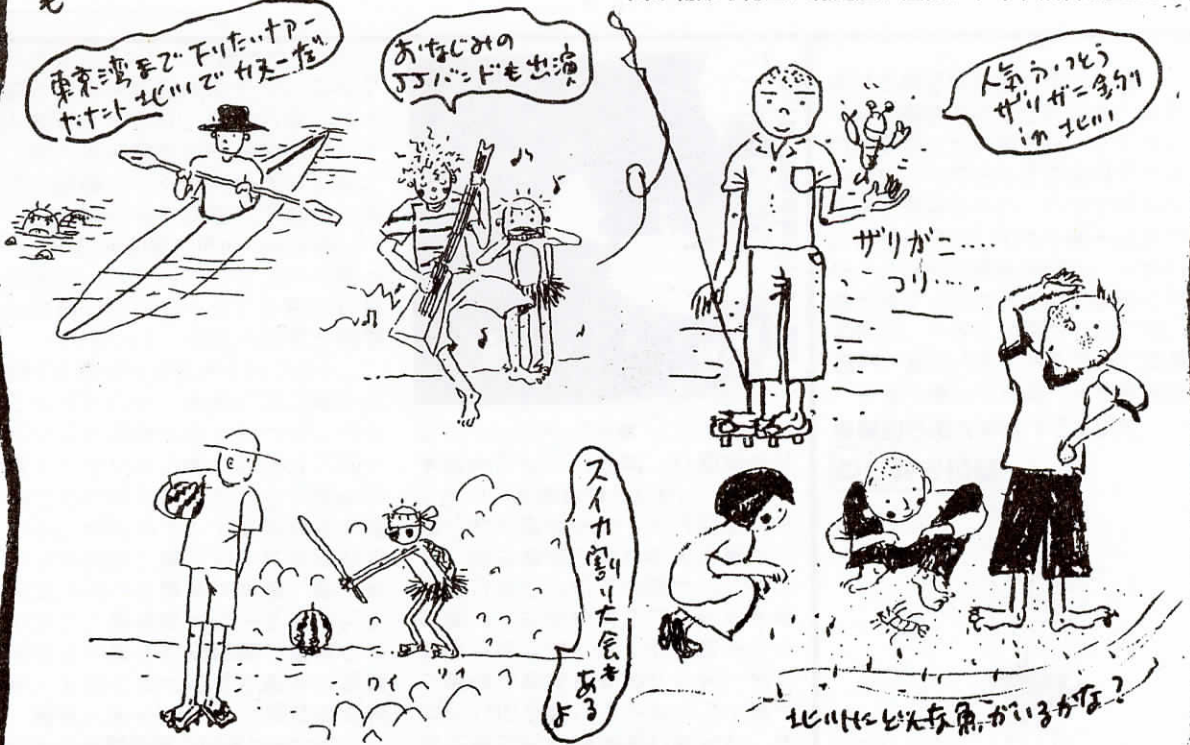 も
東京湾まで下りたいナアー
北川でカヌーだ
おなじみの
JJバンドも出演
人気ういつとう
ザリガニ釣り
in 北川
ザリがニ.....
コリ....
スイカ割り大会も
あるよ
ワイ ワイ
北川にどんな魚がいるかな?